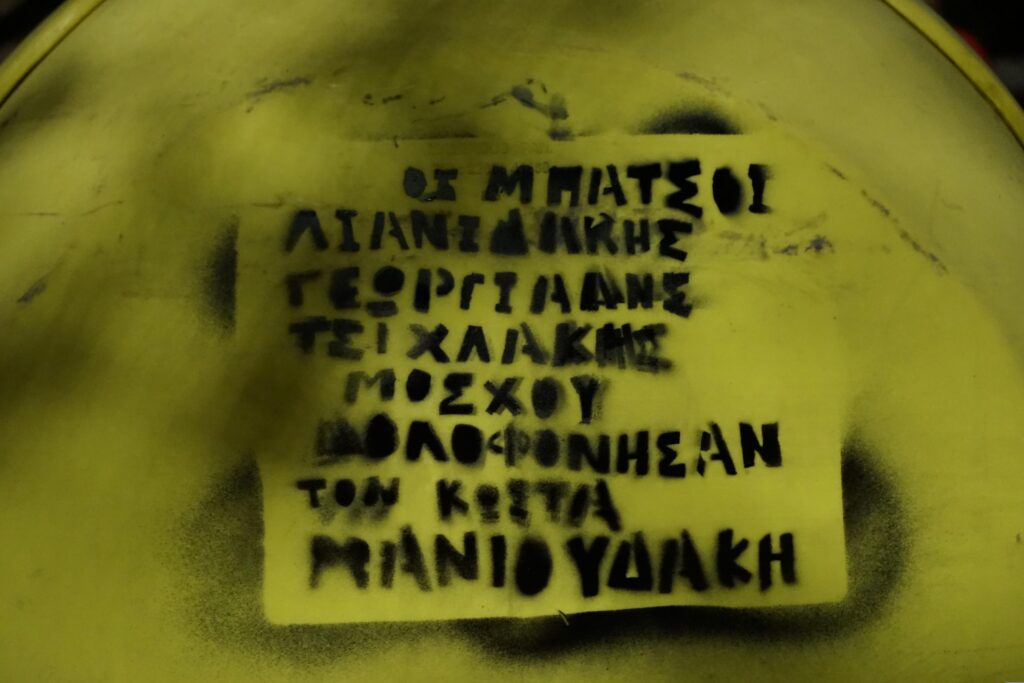 ΟΙ ΜΠΑΤΣΟΙ
ΛΙΑΝΙΔΑΚΗΣ
ΓΕΩΡΓΙΛΑΔΝΣ
ΤΣΙΧΛΑΚΗΣ
ΜΟΣΧΟΥ
ΔΟΛΟΦΟΝΗΣΑΝ
ΤΟΝ ΚΩΣΤΑ
ΜΑΝΙΟΥΔΑΚΗ